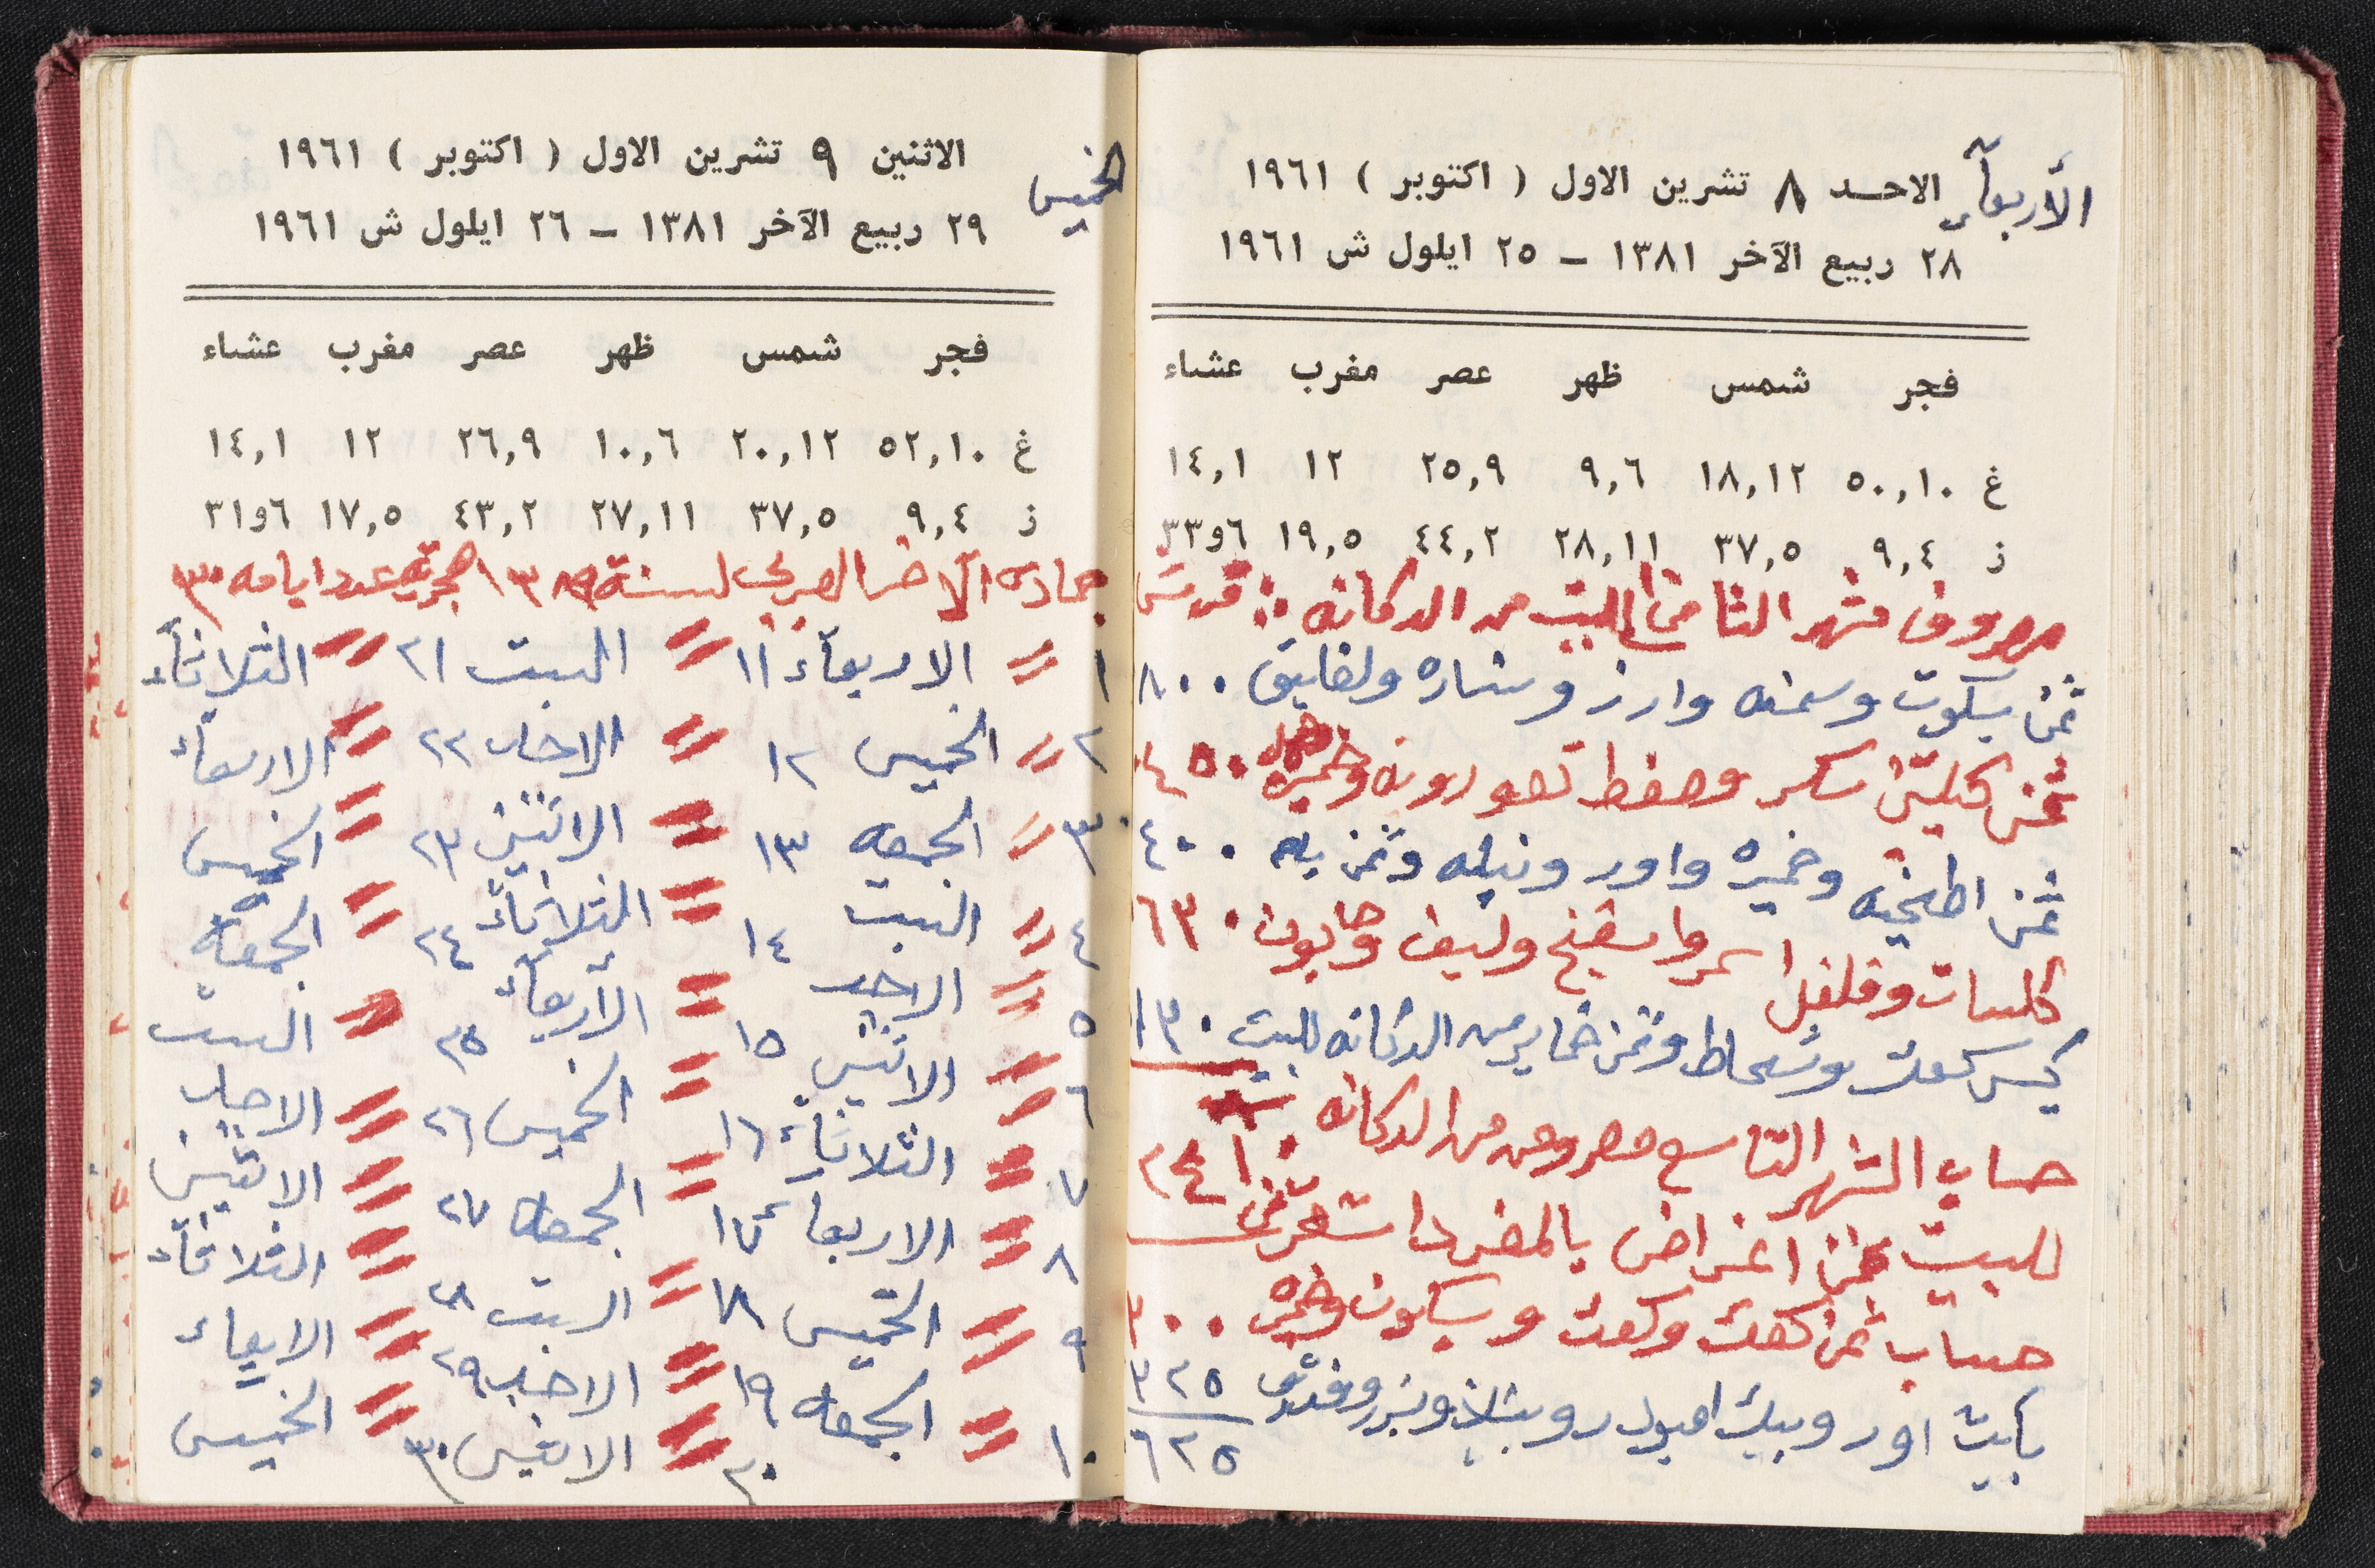 الأربعآء
الاحد ٨ تشرين الاول ( اكتوبر ) ١٩٦١
٢٨ ربيع الآخر ١٣٨١ – ٢٥ ايلول ش ١٩٦١
فجر شمس ظهر عصر مغرب عشاء
غ ٥٠,١٠ ١٨,١٢ ٩,٦ ٢٥,٩ ١٢ ١٤,١
ز ٩,٤ ٣٧,٥ ٢٨,١١ ٤٤,٢ ١٩,٥ ٦و٣٣
مصروف شهر الثامن البيت من الدكانه
ثمن بسكوت وسمنه وارز وستاره ولفايق ٨٠٠
ثمن كيلتين سكر وحفظ وخميره ٤٥٠
ثمن اطبخيه وخميره واور ونيله وثمن ٤٠٠
كلسات وفلفل اسمر واسفنج وليف وصابون ٦٣٠
كيس كعك وشحاط وثمن خماير من الدكانه للبيت ١٣٠
حساب الشهر التاسع مصروف من الدكانه
للبيت ثمن اغراض بالمفردات ٢٤١٠
حساب ثمن كعك وكعك وبسكوت وخميره ٣٠٠
باكيت اور وبيك وبزر وفستق ٣٢٥
٦٢٥
الخميس
الاثنين ٩ تشرين الاول ( اكتوبر ) ١٩٦١
٢٩ ربيع الآخر ١٣٨١ – ٢٦ ايلول ش ١٩٦١
فجر شمس ظهر عصر مغرب عشاء
غ ٥٢,١٠ ٢٠,١٢ ١٠,٦ ٢٦,٩ ١٢ ١٤,١
ز ٩,٤ ٣٧,٥ ٢٧,١١ ٤٣,٢ ١٧,٥ ٦و٣١
جمادى الآخر العربي لسنة هجريه عدد ايامه ٣٠
١ = الاربعآء ١١ = السبت ٢١ = الثلاثآء
٢ = الخميس ١٢ = الاحد ٢٢ = الاربعآء
٣ = الجمعه ١٣ = الاثنين ٢٣ = الخميس
٤ = السبت ١٤ = الثلاثآء ٢٤ = الجمعه
٥ = الاحد ١٥ = الأربعآء ٢٥ = السبت
٦ = الاثنين ١٦ = الخميس ٢٦ = الاحد
٧ = الثلاثآء ١٧ = الجمعه ٢٧ = الاثنين
٨ = الاربعاء ١٨ = السبت ٢٨ = الثلاثآء
٩ = الخميس ١٩ = الاحد ٢٩ = الابعاء
١٠ = الجمعه ٢٠ = الاثنين ٣٠ = الخميس